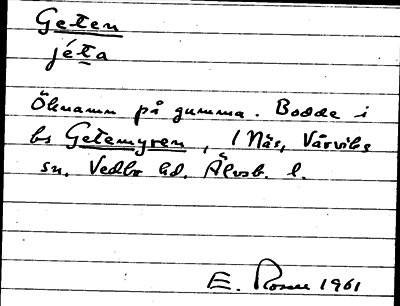 Geten
jéta
Öknamn på gumma. Bodde i
bs Getemyren, 1 Näs, Vårviks
sn. Vedbo hd. Älvsb. l.
E. Rosne 1961